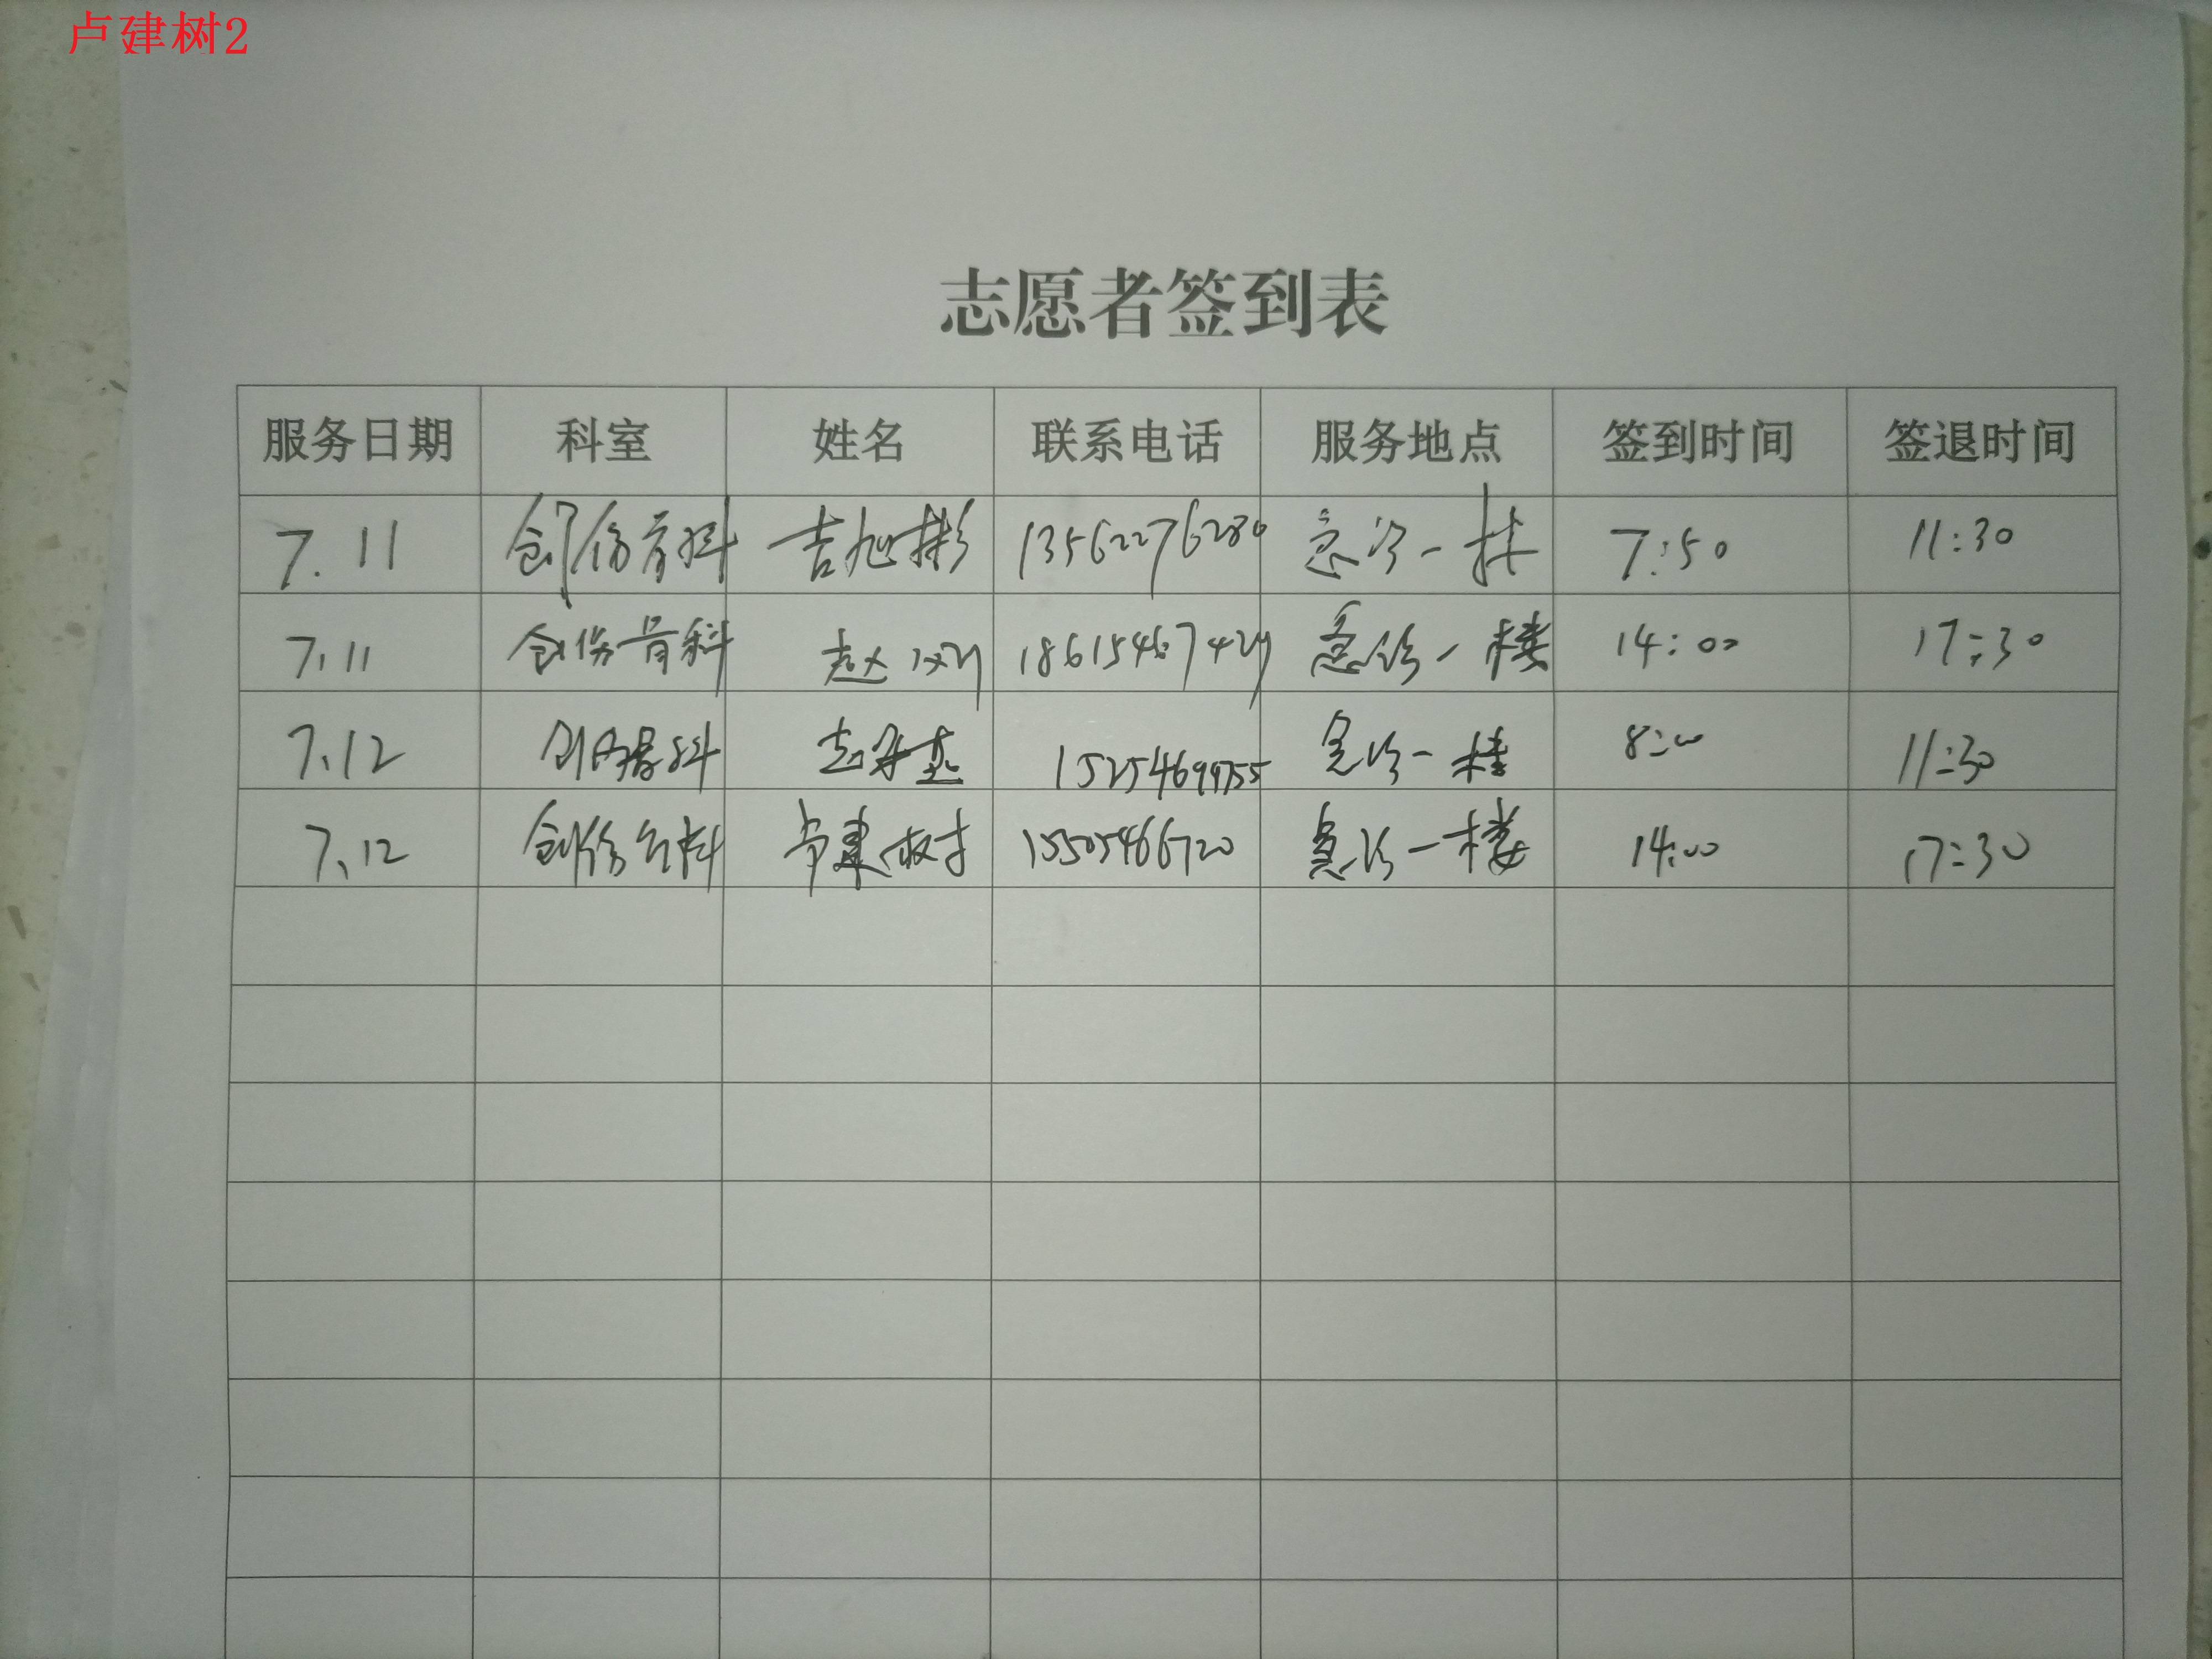 卢建树2
志愿者签到表
服务日期 科室 姓名 联系电话 服务地点 签到时间 签退时间
7.11 创伤骨科 吉旭彬 13562276280 急诊一楼 7:50 11:30
7.11 创伤骨科 赵 18615467429 急诊一楼 14:00 17:30
7.12 创伤骨科 急诊一楼 8:00 11:30
7.12 创伤骨科 卢建树 15505466720 急诊一楼 14:00 17:30